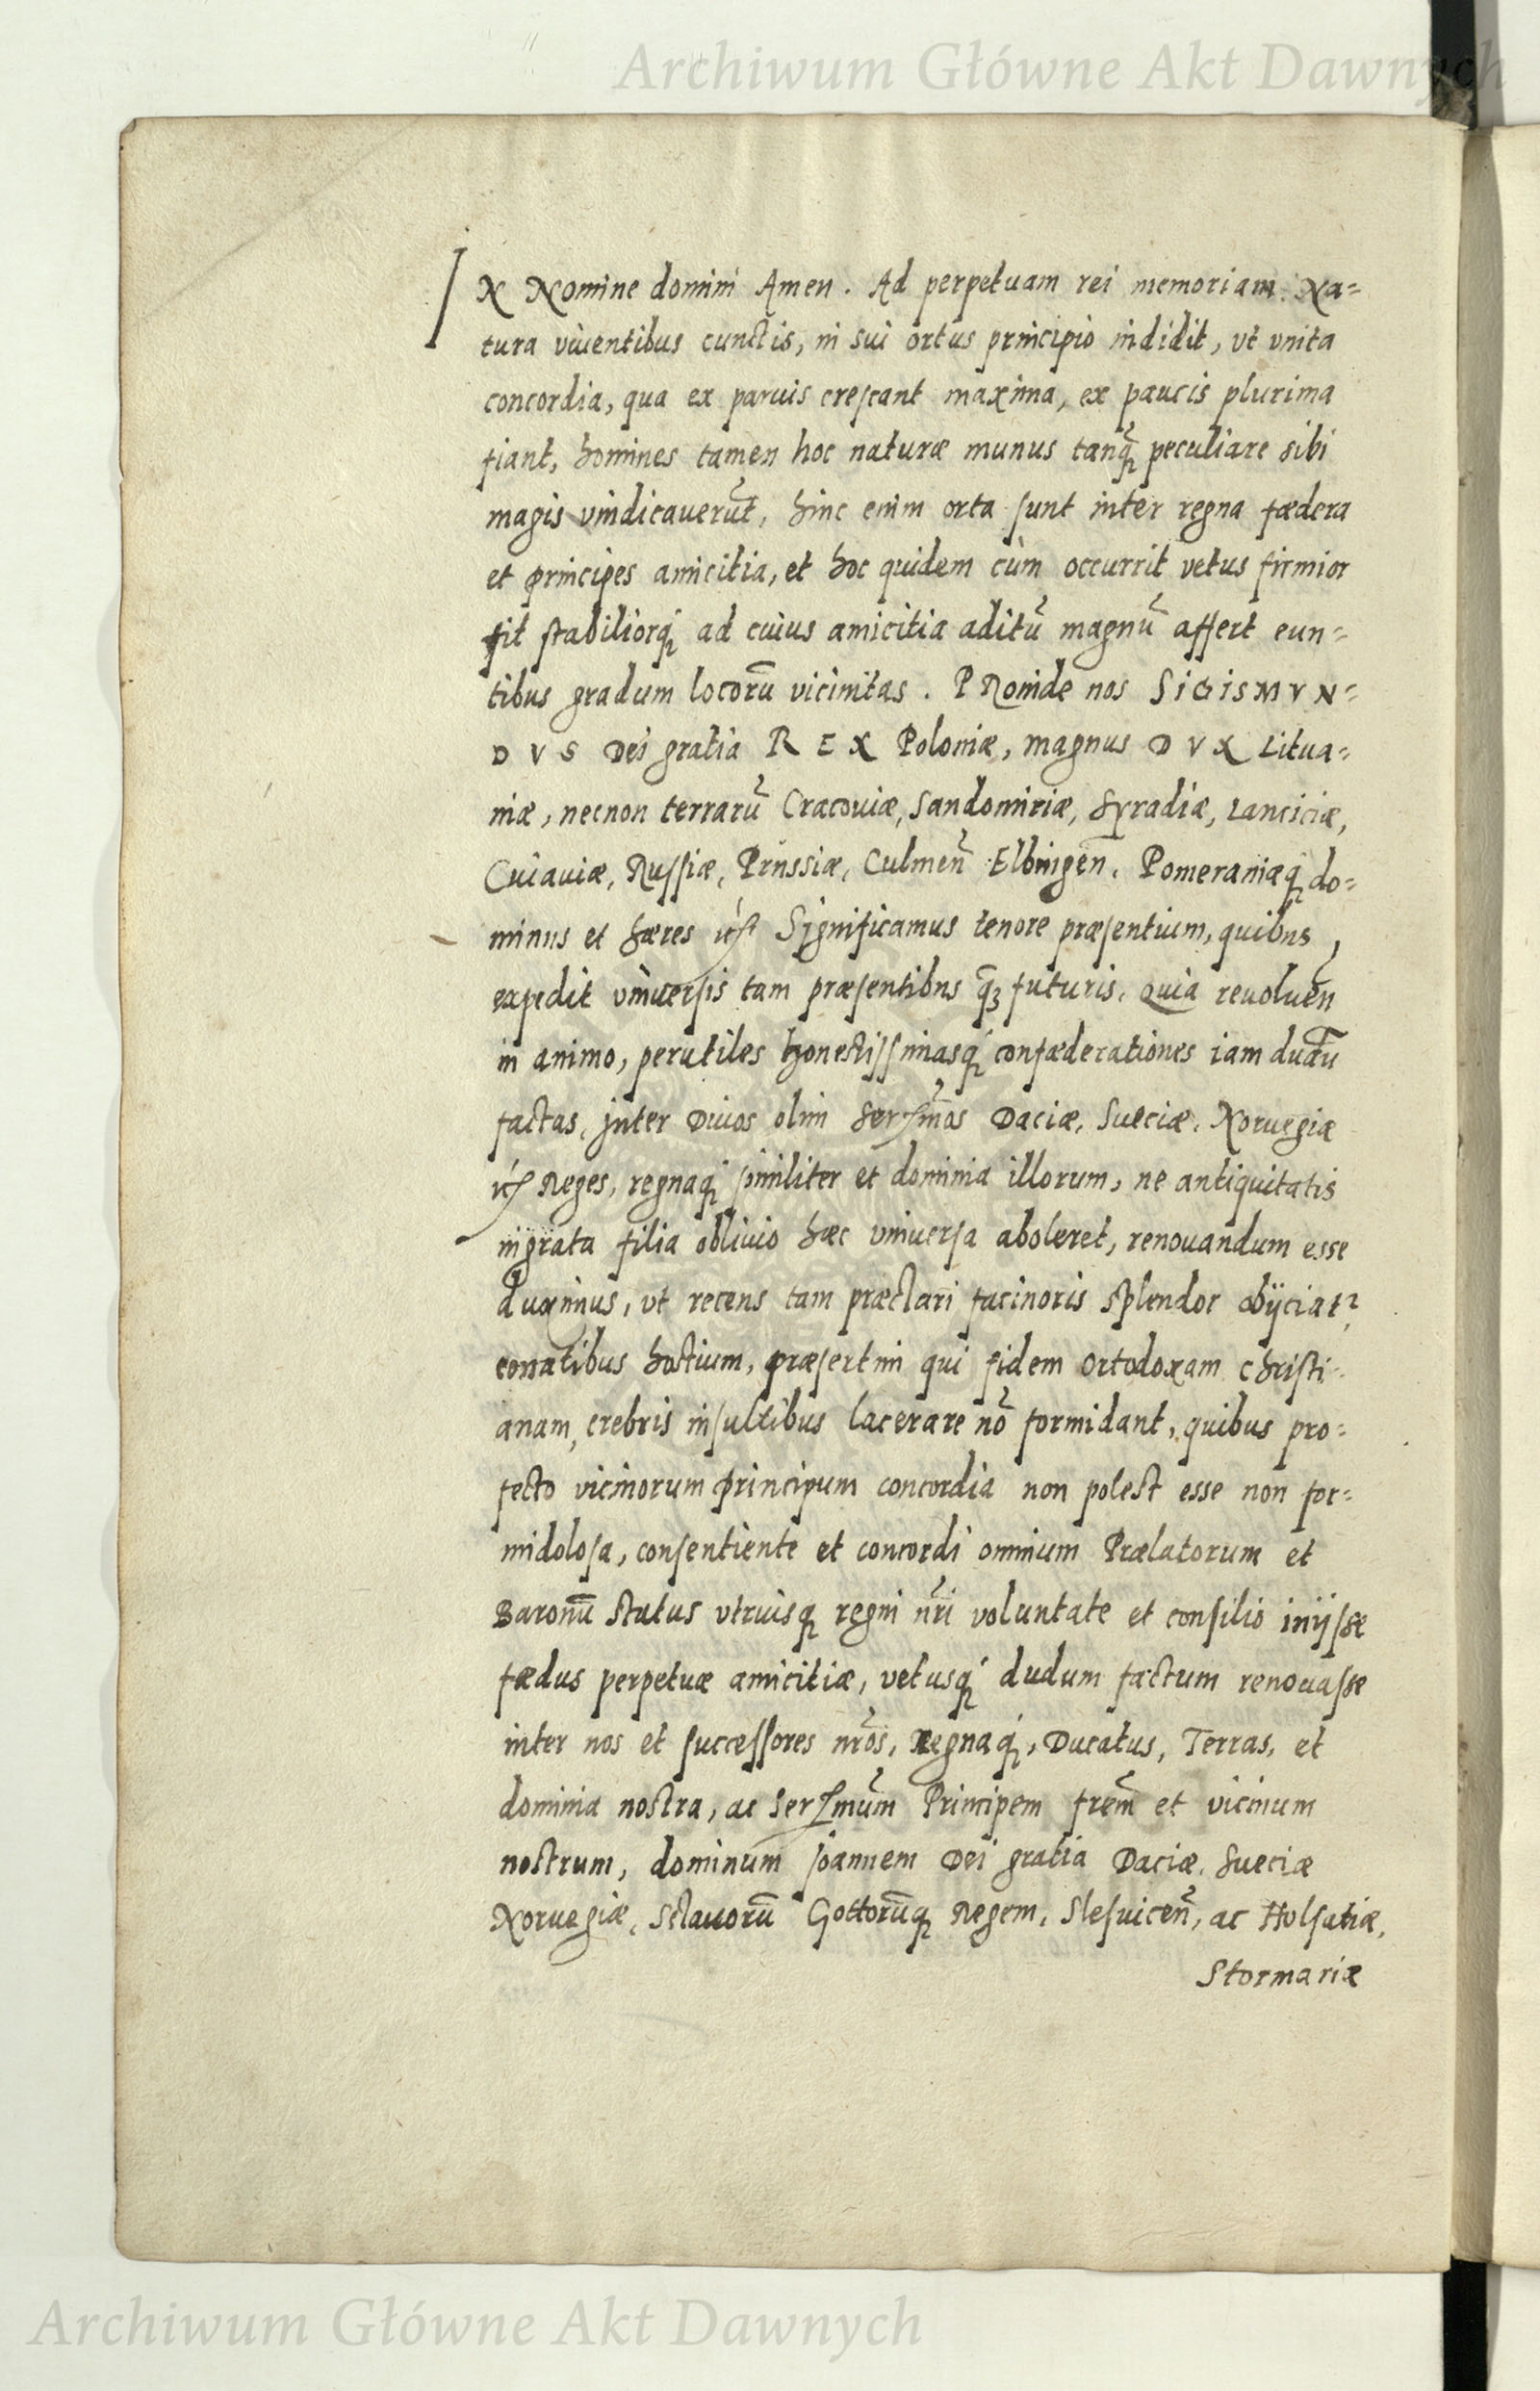 Archiwum Główne Akt Dawnych
IN Nomine domini Amen. Ad perpetuam rei memoriam. Na=
tura viventibus cunctis, in sui ortus principio indidit, vt vnita
concordia, qua ex paruis crescant maxima, ex paucis plurima
fiant, homines tamen hoc naturæ munus tanq̃ peculiare sibi
magis vindicauerũt, hinc enim orta sunt inter regna fædera
et principes amicitia, et hoc quidem cùm occurrit vetus firmior
fit stabiliorq́ ad cuius amicitia aditũ magnũ affert eun=
tibus gradum locorũ vicinitas. PRoinde nos SIGISMVN=
DVS Dei gratia REX Poloniæ, magnus DVX Litua=
niæ, necnon terrarũ Cracouiæ, Sandomiriæ, Syradiæ, Lanciciæ,
Cuiauiæ, Russiæ, Prussiæ, Culmeñ Elbingeñ, Pomeraniæq́ do=
minus et hæres Significamus tenore præsentium, quibus
expedit vniuersis tam præsentibus q̃ futuris, Quia reuolueñ
in animo, perutiles honestissimasq́ confæderationes iam
factas, inter Diuos olim Serm̃os Daciæ, Sueciæ, Noruegiæ
Reges, regnaq́ similiter et dominia illorum, ne antiquitatis
ingrata filia obliuio hæc vniuersa aboleret, renouandum esse
duximus, vt recens tam præclari facinoris splendor obijciat~
conatibus hostium, præsertim qui fidem Ortodoxam Christi=
anam, crebris insultibus lacerare nõ formidant, quibus pro=
fecto vicinorum principum concordia non potest esse non for=
midolosa, consentiente et concordi omnium Prælatorum et
Baronũ status vtriusq́ regni nr̃i voluntate et consilio inijsse
fædus perpetuæ amicitiæ, vetusq́ dudum factum renouasse
inter nos et successores nr̃os, Regnaq́, Ducatus, Terras, et
dominia nostra, ac Serm̃um Principem frem̃ et vicinum
nostrum, dominum Joannem Dei gratia Daciæ, Sueciæ
Noruegiæ, Sclauorũ Gottorũq́ Regem, Slesuiceñ, ac Holsatiæ,
Stormariæ
Archiwum Główne Akt Dawnych